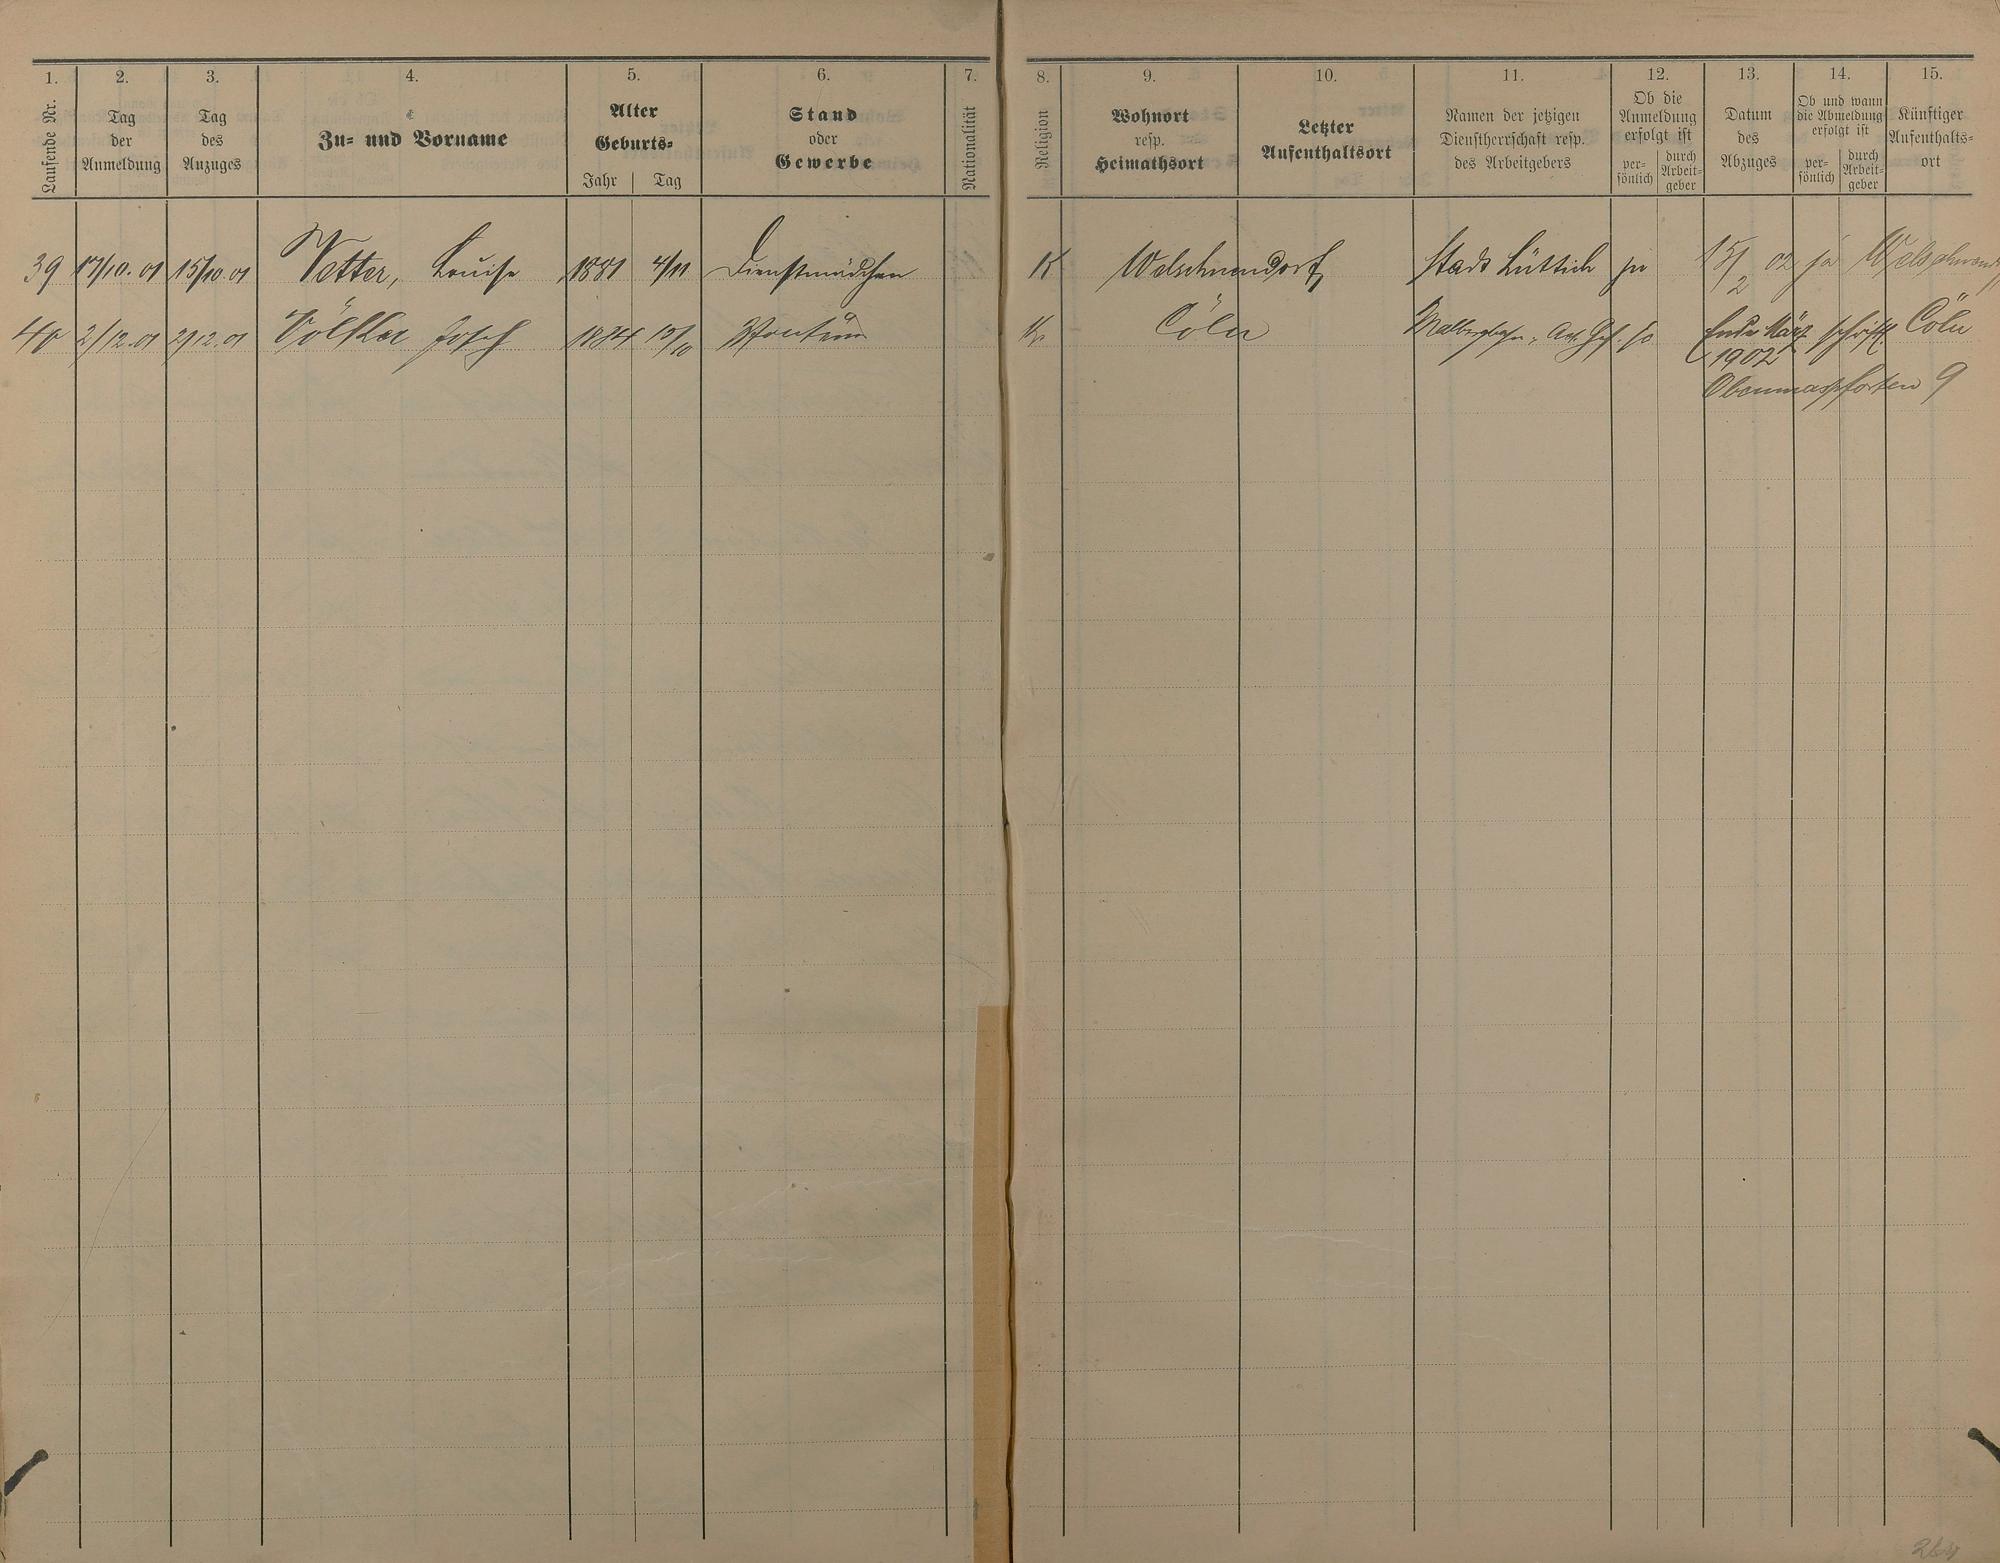 1. 2. 3. 4. 5. 6. 7. 8. 9. 10. 11. 12. 13. 14. 15.
Laufende Nr.
Tag der Anmeldung
Tag des Anzuges
Zu- und Vorname
Alter
Geburts-
Jahr | Tag
Stand
oder
Gewerbe
Nationalität
Religion
Wohnort
resp.
Heimathsort
Letzter
Aufenthaltsort
Namen der jetzigen
Dienstherrschaft resp.
des Arbeitgebers
Ob die
Anmeldung
erfolgt ist
per-
sönlich
durch
Arbeit-
geber
Datum
des
Abzuges
Ob und wann
die Abmeldung
erfolgt ist
per-
sönlich
durch
Arbeit-
geber
Künftiger
Aufenthalts-
ort
39 17/10.01 15/10.01 Vetter, Louise 1881 4/11 Dienstmädchen K Welschneudorf Stadt Lüttich ja 15/2 02 ja
40 2/12.01 2/12.01 Völker Josef 1884 13/10 K. Cöln Malbergbahn, Act. Ges. Ende März schriftl. Cöln
1902
Obenmarspforten 9